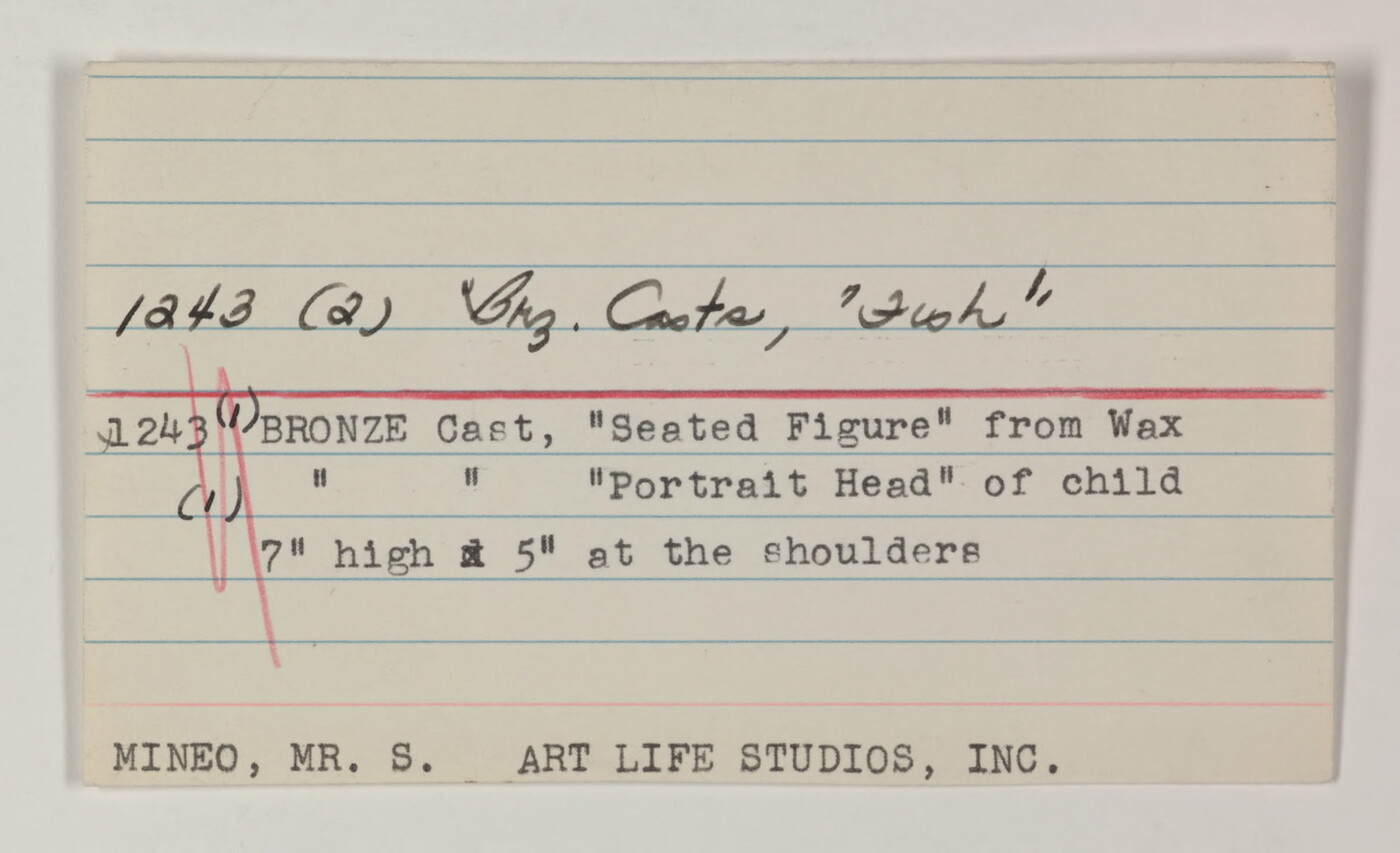 1243 (2) Brz. Casts, "Fish"
1243 (1) BRONZE Cast, "Seated Figure" from Wax
(1) " " "Portrait Head" of child
7" high x 5" at the shoulders
MINEO, MR. S. ART LIFE STUDIOS, INC.